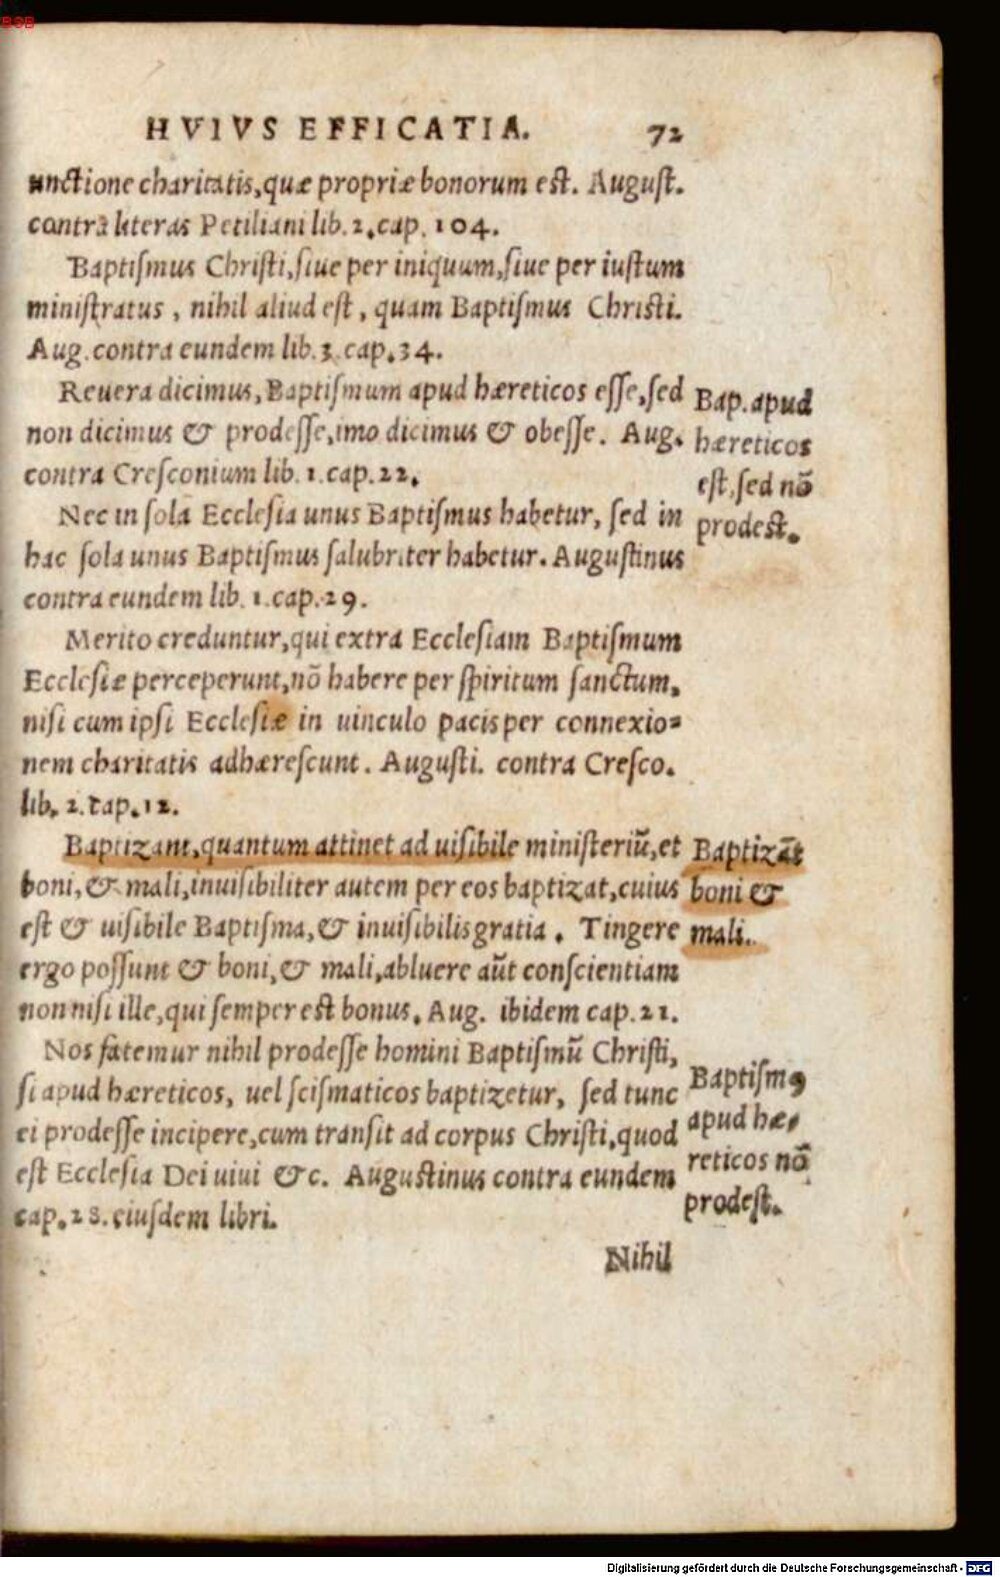 BSB
HVIVS EFFICATIA. 72
unctione charitatis, quæ propriæ bonorum est. August.
contrà literas Petiliani lib. 2. cap. 104.
Baptismus Christi, siue per iniquum, siue per iustum
ministratus, nihil aliud est, quam Baptismus Christi.
Aug. contra eundem lib. 3. cap. 34.
Reuera dicimus, Baptismum apud hæreticos esse, sed
non dicimus & prodesse, imo dicimus & obesse. Aug.
contra Cresconium lib. 1. cap. 22.
Bap. apud
hæreticos
est, sed nō
prodest.
Nec in sola Ecclesia unus Baptismus habetur, sed in
hac sola unus Baptismus salubriter habetur. Augustinus
contra eundem lib. 1. cap. 29.
Merito creduntur, qui extra Ecclesiam Baptismum
Ecclesiæ perceperunt, nō habere per spiritum sanctum,
nisi cum ipsi Ecclesiæ in uinculo pacis per connexio=
nem charitatis adhærescunt. Augusti. contra Cresco.
lib. 2. cap. 12.
Baptizant, quantum attinet ad uisibile ministeriū, et
boni, & mali, inuisibiliter autem per eos baptizat, cuius
est & uisibile Baptisma, & inuisibilis gratia. Tingere
ergo possunt & boni, & mali, abluere aūt conscientiam
non nisi ille, qui semper est bonus. Aug. ibidem cap. 21.
Baptizāt
boni &
mali.
Nos fatemur nihil prodesse homini Baptismū Christi,
si apud hæreticos, uel scismaticos baptizetur, sed tunc
ei prodesse incipere, cum transit ad corpus Christi, quod
est Ecclesia Dei uiui &c. Augustinus contra eundem
cap. 28. eiusdem libri.
Baptismꝯ
apud hæ=
reticos nō
prodest.
Nihil
Digitalisierung gefördert durch die Deutsche Forschungsgemeinschaft - DFG